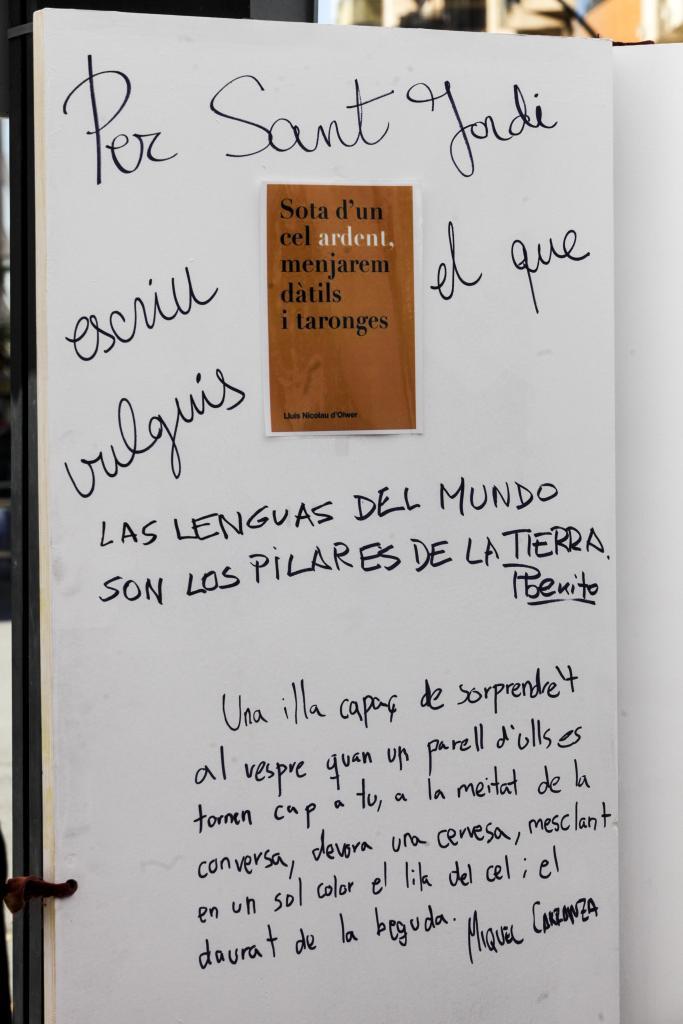 Per Sant Jordi
Sota d'un
cel ardent,
menjarem
dàtils
i taronges
Lluís Nicolau d'Olwer
escriu el que
vulguis
LAS LENGUAS DEL MUNDO
SON LOS PILARES DE LA TIERRA.
PBenito
Una illa capaç de sorprendre't
al vespre quan un parell d'ulls es
tornen cap a tu, a la meitat de la
conversa, devora una cervesa, mesclant
en un sol color el lila del cel i el
daurat de la beguda. MIQUEL